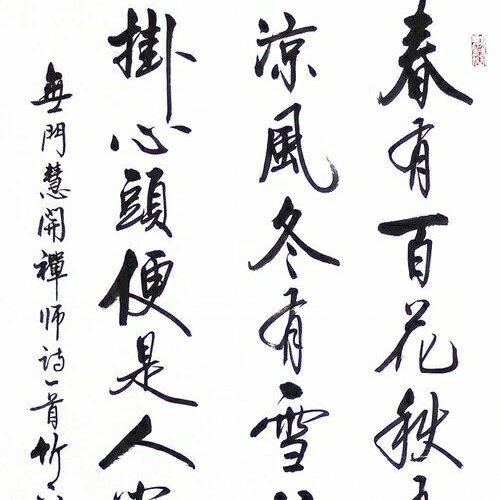 春有百花秋
涼風冬有雪
掛心頭便是人
無門慧開禪師詩一首竹